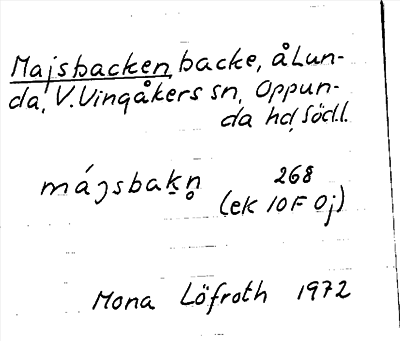 Majsbacken, backe, å Lun-
da, V. Vingåkers sn, Oppun-
da hd, Södl.
májsbakn̥
268
(ek 10F 0j)
Mona Löfroth 1972